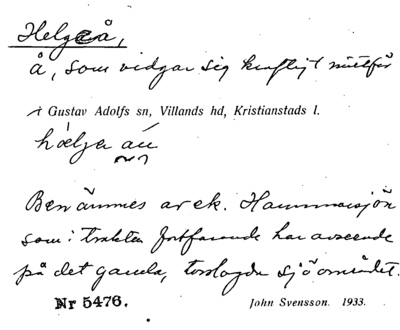 Helgeå,
å, som vidgar sig kraftigt mitför
i Gustav Adolfs sn, Villands hd, Kristianstads l.
hæljea
Benämnes av ek. Hammarsjön
som i trakten fortfarande har avseende
på det gamla, torrlagda sjöområdet.
Nr 5476.
John Svensson. 1933.